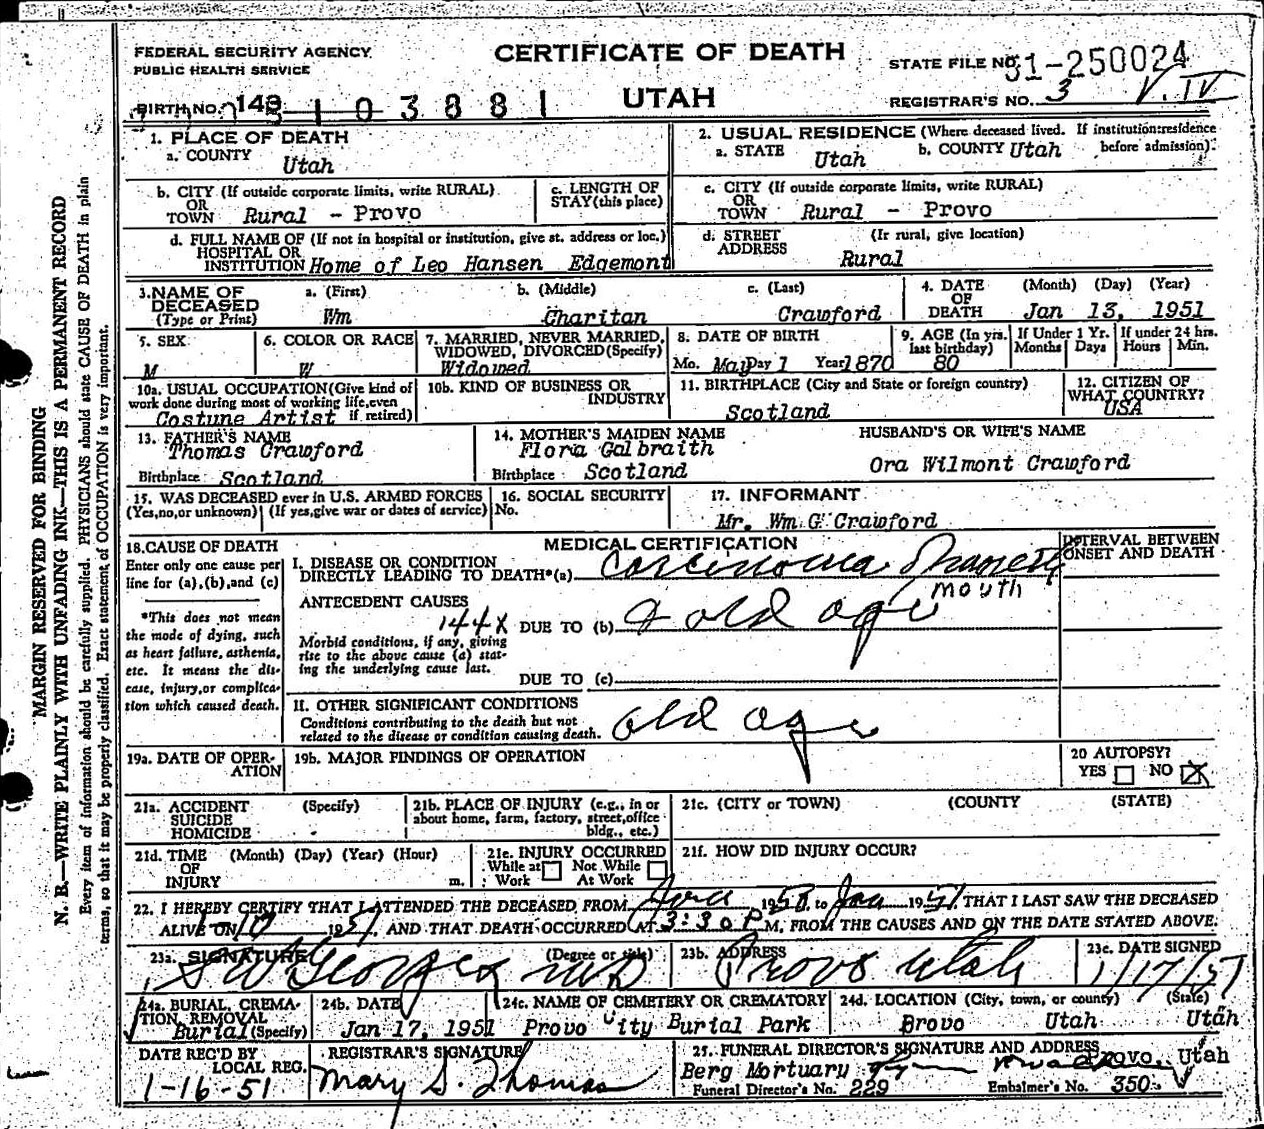 CERTIFICATE OF DEATH
FEDERAL SECURITY AGENCY
PUBLIC HEALTH SERVICE
STATE FILE NO. 51-250024
BIRTH NO. 143 103881
UTAH
REGISTRAR'S NO. 3 V. IV
MARGIN RESERVED FOR BINDING
N. B.—WRITE PLAINLY WITH UNFADING INK—THIS IS A PERMANENT RECORD
Every item of information should be carefully supplied. PHYSICIANS should state CAUSE OF DEATH in plain
terms, so that it may be properly classified. Exact statement of OCCUPATION is very important.
1. PLACE OF DEATH
a. COUNTY Utah
2. USUAL RESIDENCE (Where deceased lived. If institution: residence before admission).
a. STATE Utah b. COUNTY Utah
b. CITY (If outside corporate limits, write RURAL)
OR
TOWN Rural - Provo
c. LENGTH OF STAY (this place)
c. CITY (If outside corporate limits, write RURAL)
OR
TOWN Rural - Provo
d. FULL NAME OF (If not in hospital or institution, give st. address or loc.)
HOSPITAL OR
INSTITUTION Home of Leo Hansen Edgemont
d. STREET ADDRESS (Ir rural, give location)
Rural
3. NAME OF DECEASED (Type or Print)
a. (First) b. (Middle) c. (Last)
Wm Charitan Crawford
4. DATE OF DEATH (Month) (Day) (Year)
Jan 13, 1951
5. SEX
M
6. COLOR OR RACE
W
7. MARRIED, NEVER MARRIED, WIDOWED, DIVORCED (Specify)
Widowed
8. DATE OF BIRTH
Mo. May Day 1 Year 1870
9. AGE (In yrs. last birthday)
80
If Under 1 Yr. Months Days
If under 24 hrs. Hours Min.
10a. USUAL OCCUPATION (Give kind of work done during most of working life, even if retired)
Costune Artist
10b. KIND OF BUSINESS OR INDUSTRY
11. BIRTHPLACE (City and State or foreign country)
Scotland
12. CITIZEN OF WHAT COUNTRY?
USA
13. FATHER'S NAME
Thomas Crawford
Birthplace Scotland
14. MOTHER'S MAIDEN NAME
Flora Galbraith
Birthplace Scotland
HUSBAND'S OR WIFE'S NAME
Ora Wilmont Crawford
15. WAS DECEASED ever in U.S. ARMED FORCES
(Yes, no, or unknown) (If yes, give war or dates of service)
16. SOCIAL SECURITY No.
17. INFORMANT
Mr. Wm G Crawford
18. CAUSE OF DEATH
Enter only one cause per line for (a), (b), and (c)
*This does not mean the mode of dying, such as heart failure, asthenia, etc. It means the disease, injury, or complication which caused death.
MEDICAL CERTIFICATION
INTERVAL BETWEEN ONSET AND DEATH
I. DISEASE OR CONDITION
DIRECTLY LEADING TO DEATH*(a) Carcinoma
mouth
ANTECEDENT CAUSES
144X DUE TO (b) & old age
Morbid conditions, if any, giving rise to the above cause (a) stating the underlying cause last.
DUE TO (c)
II. OTHER SIGNIFICANT CONDITIONS
Conditions contributing to the death but not related to the disease or condition causing death.
old age
19a. DATE OF OPERATION
19b. MAJOR FINDINGS OF OPERATION
20 AUTOPSY?
YES NO X
21a. ACCIDENT SUICIDE HOMICIDE (Specify)
21b. PLACE OF INJURY (e.g., in or about home, farm, factory, street, office bldg., etc.)
21c. (CITY or TOWN) (COUNTY) (STATE)
21d. TIME OF INJURY (Month) (Day) (Year) (Hour) m.
21e. INJURY OCCURRED
While at Work Not While At Work
21f. HOW DID INJURY OCCUR?
22. I HEREBY CERTIFY THAT I ATTENDED THE DECEASED FROM 1950 to Jan 1951 THAT I LAST SAW THE DECEASED
ALIVE ON 1/10 1951, AND THAT DEATH OCCURRED AT 3:30 P M, FROM THE CAUSES AND ON THE DATE STATED ABOVE.
23a. SIGNATURE (Degree or title)
S W Georges MD
23b. ADDRESS
Provo Utah
23c. DATE SIGNED
1/17/51
24a. BURIAL, CREMATION, REMOVAL (Specify)
Burial
24b. DATE
Jan 17, 1951
24c. NAME OF CEMETERY OR CREMATORY
Provo City Burial Park
24d. LOCATION (City, town, or county) (State)
Provo Utah Utah
DATE REC'D BY LOCAL REG.
1-16-51
REGISTRAR'S SIGNATURE
Mary S. Thomas
25. FUNERAL DIRECTOR'S SIGNATURE AND ADDRESS
Provo, Utah
Berg Mortuary
Funeral Director's No. 229 Embalmer's No. 350